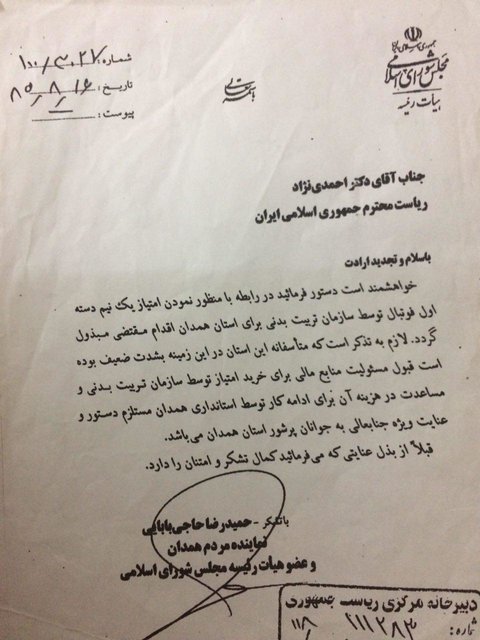 جمهوری اسلامی ایران
مجلس شورای اسلامی
هیات رئیسه
باسمه تعالی
شماره: ۱۰۰/۳۰۲۷
تاریخ: ۸۵/۸/۱۶
پیوست:
جناب آقای دکتر احمدی‌نژاد
ریاست محترم جمهوری اسلامی ایران
باسلام و تجدید ارادت
خواهشمند است دستور فرمائید در رابطه با منظور نمودن امتیاز یک تیم دسته
اول فوتبال توسط سازمان تربیت بدنی برای استان همدان اقدام مقتضی مبذول
گردد. لازم به تذکر است که متأسفانه این استان در این زمینه بشدت ضعیف بوده
است قبول مسئولیت منابع مالی برای خرید امتیاز توسط سازمان تربیت بدنی و
مساعدت در هزینه آن برای ادامه کار توسط استانداری همدان مستلزم دستور و
عنایت ویژه جنابعالی به جوانان پرشور استان همدان می‌باشد.
قبلاً از بذل عنایتی که می‌فرمائید کمال تشکر و امتنان را دارد.
باتشکر - حمیدرضا حاجی‌بابایی
نماینده مردم همدان
و عضو هیأت رئیسه مجلس شورای اسلامی
دبیرخانه مرکزی ریاست جمهوری
شماره: ۱۱۱۲۸۳